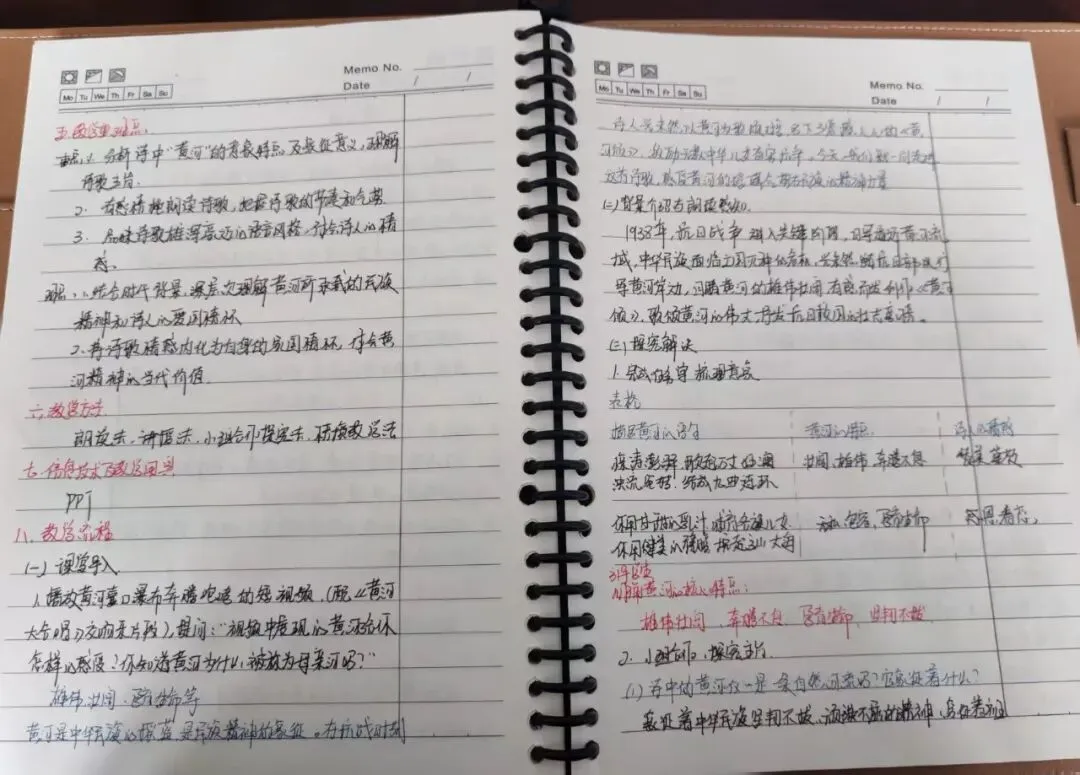 Memo No.
Date / /
Mo Tu We Th Fr Sa Su
五、教学重难点
重点:1. 分析诗中“黄河”的形象特点及象征意义,理解
诗歌主旨.
2. 有感情地朗读诗歌,把握诗歌的节奏和气势
3. 品味诗歌雄浑豪迈的语言风格,体会诗人的情
感。
难点:1.结合时代背景,深层次理解黄河所承载的民族
精神和诗人的爱国情怀
2.将诗歌情感内化为自身的家国情怀,体会黄
河精神的当代价值.
六、教学方法
朗读法、讲授法、小组合作探究法、情境教学法
七、信息技术及教学用具
PPT
八、教学流程
(一)课堂导入
1.播放黄河壶口瀑布奔腾咆哮的短视频,(配《黄河
大合唱》交响乐片段)提问:“视频中展现的黄河给你
怎样的感受?你知道黄河为什么被称为母亲河吗?”
雄伟壮阔、孕育生命等
黄河是中华民族的摇篮,是民族精神的象征。在抗战时期
Memo No.
Date / /
Mo Tu We Th Fr Sa Su
诗人光未然以黄河为歌颂对象,写下了震撼人心的《黄
河颂》,激励无数中华儿女奋勇抗争。今天,我们就一同走进
这首诗歌,感受黄河的磅礴气势与民族的精神力量
(二)背景介绍与朗读感知.
1938年,抗日战争进入关键阶段,日军逼近黄河流
域,中华民族面临亡国灭种的危机,光未然随抗日部队行
军至黄河岸边,目睹黄河的雄伟壮阔,有感而发创作《黄河
颂》,歌颂黄河的伟大,抒发抗日救国的壮志豪情。
(三)探究解决
1. 完成表格,梳理意象
表格
描写黄河的语句 黄河的特点 诗人的情感
掀起澎湃 万丈狂澜 壮阔、雄伟、奔腾不息 赞美 英勇
浊流宛转,结成九曲连环
你用甘甜的乳汁哺育各族儿女 孕育生命 感恩
你用健美的臂膀
归纳黄河的核心特点:
雄伟壮阔、奔腾不息、孕育生命、坚韧不拔
2. 小组合作,探究主旨
(1)诗中的黄河仅仅是自然河流吗?它象征着什么?
象征着中华民族坚韧不拔、顽强不屈的精神,